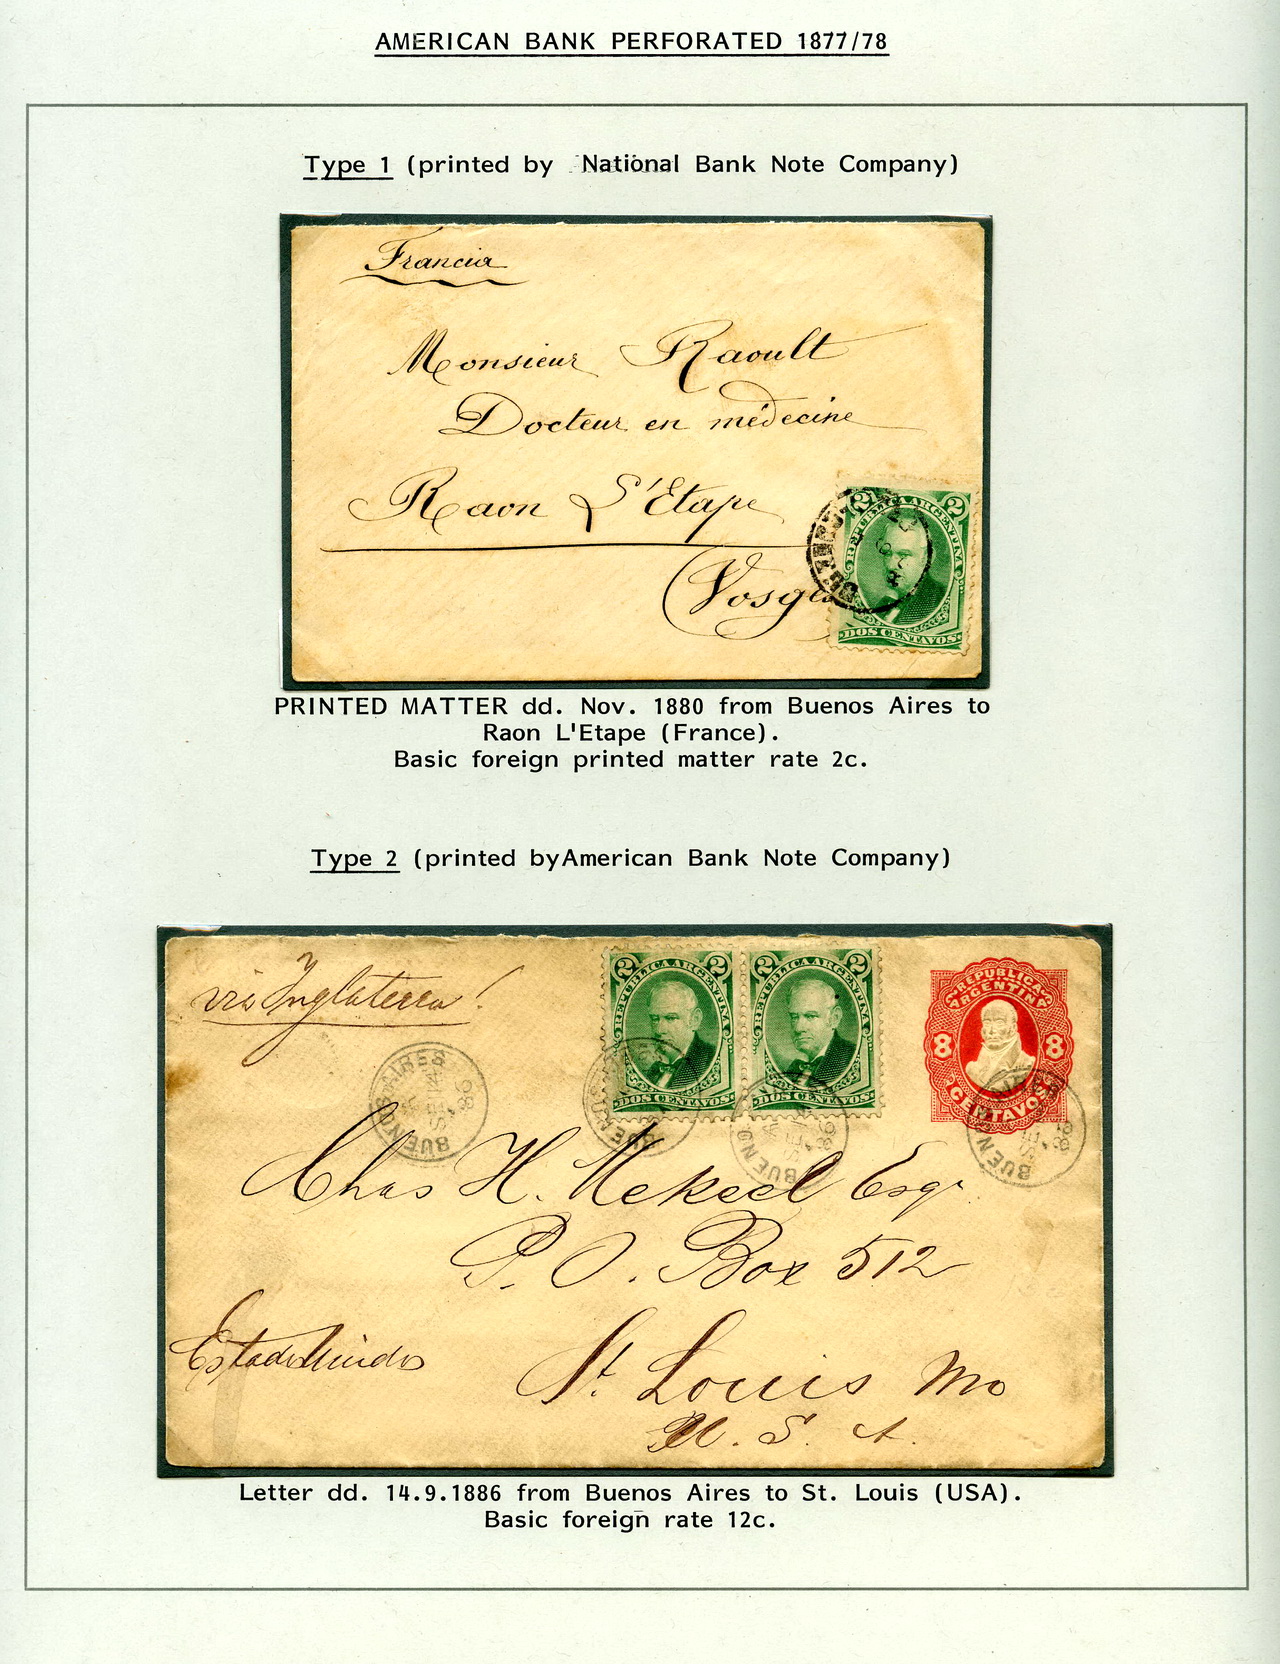 AMERICAN BANK PERFORATED 1877/78
Type 1 (printed by National Bank Note Company)
Francia
Monsieur Raoult
Docteur en médecine
Raon L'Etape
(Vosges
2 2
REPUBLICA ARGENTINA
DOS CENTAVOS
PRINTED MATTER dd. Nov. 1880 from Buenos Aires to
Raon L'Etape (France).
Basic foreign printed matter rate 2c.
Type 2 (printed byAmerican Bank Note Company)
via Inglaterra!
2 2
REPUBLICA ARGENTINA
DOS CENTAVOS
2 2
REPUBLICA ARGENTINA
DOS CENTAVOS
REPUBLICA
ARGENTINA
8 8
CENTAVOS
BUENOS AIRES
SE 14
86
BUENOS
BUENOS
86
BUENOS
86
Chas H. Mekeel Esqr
P. O. Box 512
Estados Unidos
St. Louis Mo
U. S. A.
Letter dd. 14.9.1886 from Buenos Aires to St. Louis (USA).
Basic foreign rate 12c.